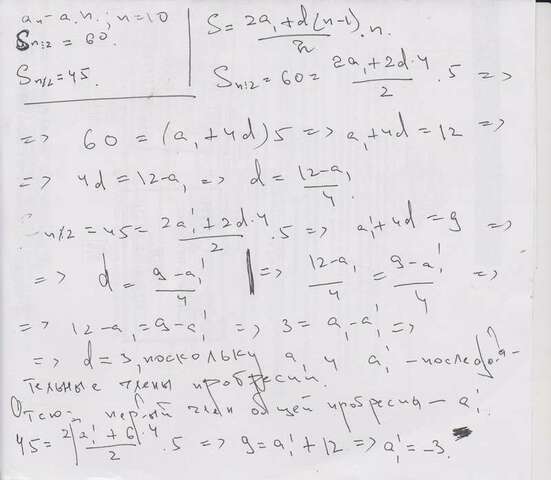 aₙ - а.п.; n=10
Sₙ:₂ = 60.
Sₙ⁄₂ = 45.
S = (2a₁ + d(n-1))/2 · n.
Sₙ:₂ = 60 = (2a₁ + 2d·4)/2 · 5 =>
=> 60 = (a₁ + 4d) 5 => a₁ + 4d = 12 =>
=> 4d = 12 - a₁ => d = (12 - a₁)/4
Sₙ⁄₂ = 45 = (2a₁' + 2d·4)/2 · 5 => a₁' + 4d = 9 =>
=> d = (9 - a₁')/4 => (12 - a₁)/4 = (9 - a₁')/4 =>
=> 12 - a₁ = 9 - a₁' => 3 = a₁ - a₁' =>
=> d = 3, поскольку a₁ и a₁' - последова-
тельные члены пробресии.
Отсю первый член общей пробресиа - a₁'.
45 = 2(a₁' + 6)·4/2 · 5 => 9 = a₁' + 12 => a₁' = -3.